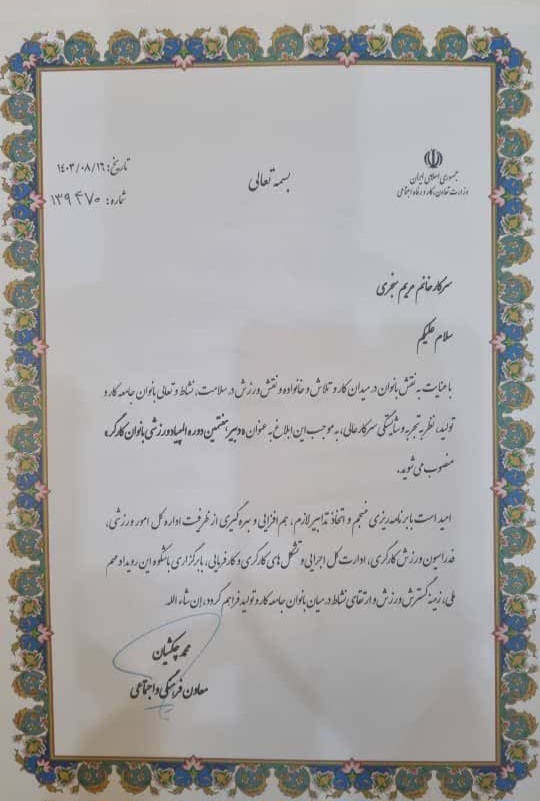 جمهوری اسلامی ایران
وزارت تعاون، کار و رفاه اجتماعی
بسمه تعالی
تاریخ: ۱۴۰۳/۰۸/۱۶
شماره: ۱۳۹۴۷۰
سرکار خانم مریم سنجری
سلام علیکم
با عنایت به نقش بانوان در میدان کار و تلاش و خانواده و نقش ورزش در سلامت، نشاط و تعالی بانوان جامعه کار و
تولید، نظر به تجربه و شایستگی سرکار عالی، به موجب این ابلاغ به عنوان «دبیر هفتمین دوره المپیاد ورزشی بانوان کارگر»
منصوب می شوید.
امید است با برنامه ریزی منسجم و اتخاذ تدابیر لازم، هم افزایی و بهره گیری از ظرفیت اداره کل امور ورزشی،
فدراسیون ورزش کارگری، ادارت کل اجرایی و تشکل های کارگری و کارفرمایی، با برگزاری باشکوه این رویداد مهم
ملی، زمینه گسترش ورزش و ارتقای نشاط در میان بانوان جامعه کار و تولید فراهم گردد، إن شاء الله.
محمد چکشیان
معاون فرهنگی و اجتماعی